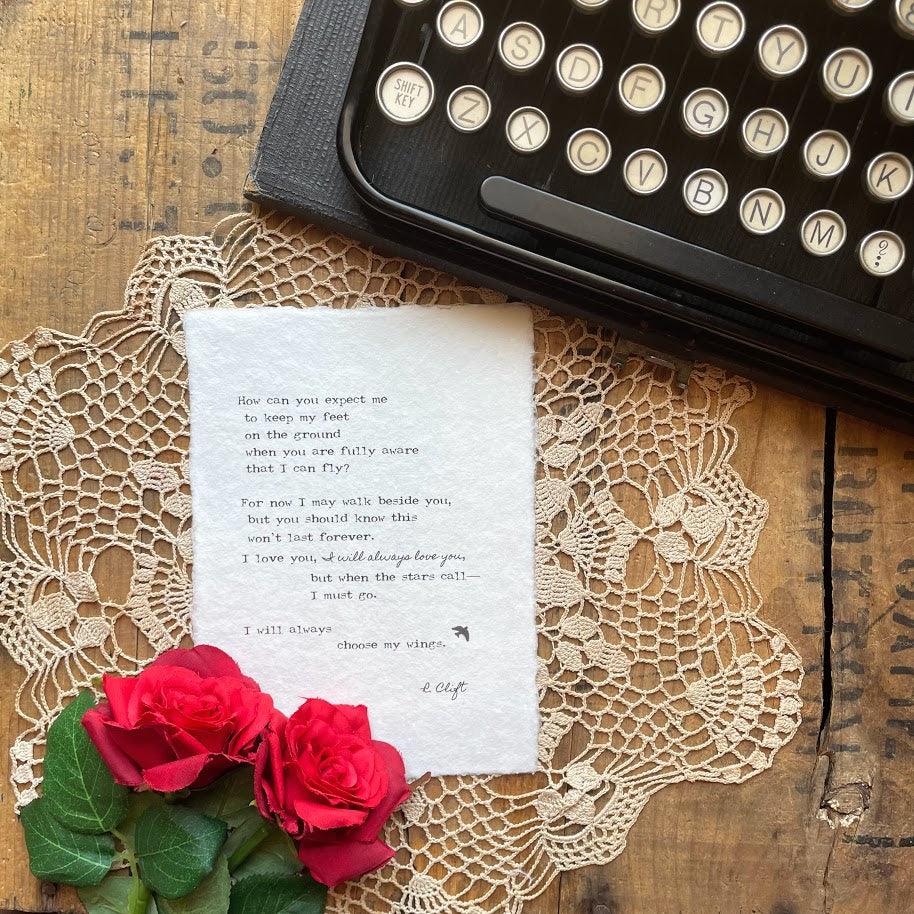 R T Y U I
A S D F G H J K
SHIFT
KEY
Z X C V B N M ?
How can you expect me
to keep my feet
on the ground
when you are fully aware
that I can fly?
For now I may walk beside you,
but you should know this
won't last forever.
I love you, I will always love you,
but when the stars call—
I must go.
I will always
choose my wings.
R. Clift